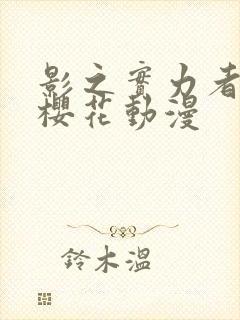 影之實力者
櫻花動漫
鈴木溫